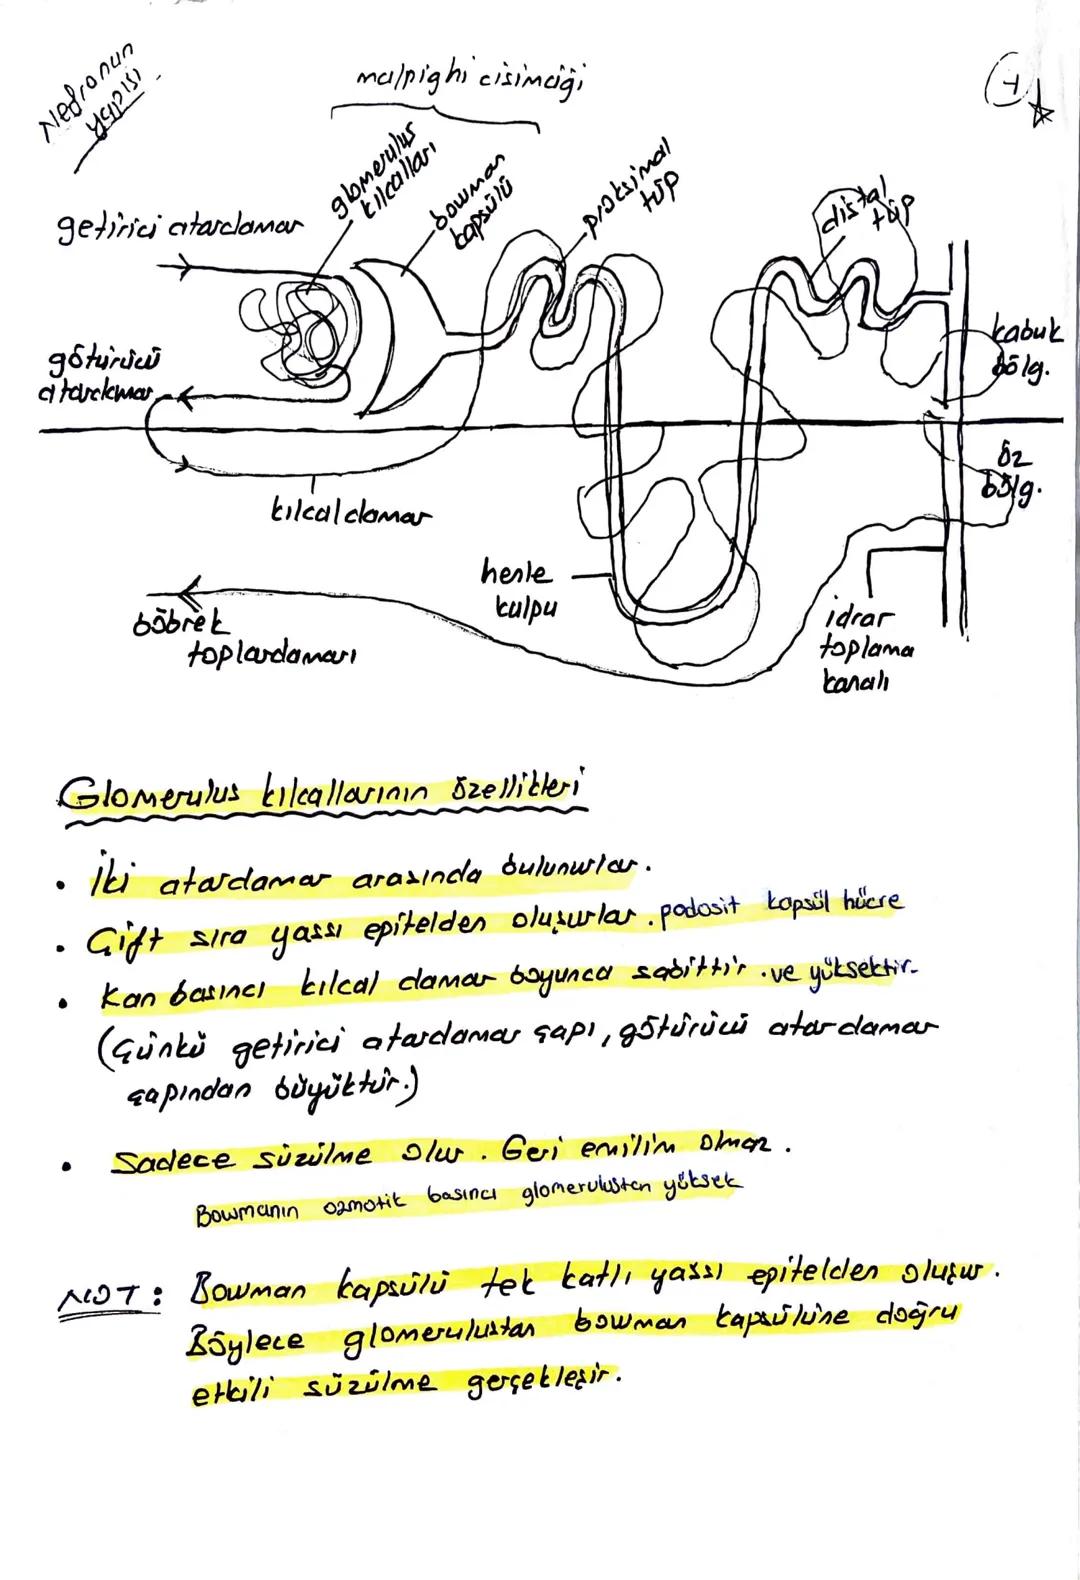 Nefronun
yapısı
malpighi cisimciği
4
glomerulus
kılcalları
bowman
kapsülü
proksimal
tüp
distal
tüp
getirici atardamar
götürücü
atardamar
kabuk
bölg.
öz
bölg.
kılcal damar
henle
kulpu
böbrek
toplardamarı
idrar
toplama
kanalı
Glomerulus kılcallarının özellikleri
• İki atardamar arasında bulunurlar.
• Çift sıra yassı epitelden oluşurlar. podosit kapsül hücre
• Kan basıncı kılcal damar boyunca sabittir. ve yüksektir.
(Çünkü getirici atardamar çapı, götürücü atardamar
çapından büyüktür.)
• Sadece süzülme olur. Geri emilim olmaz.
Bowmanın ozmotik basıncı glomerulusten yüksek
NOT: Bowman kapsülü tek katlı yassı epitelden oluşur.
Böylece glomerulustan bowman kapsülüne doğru
etkili süzülme gerçekleşir.